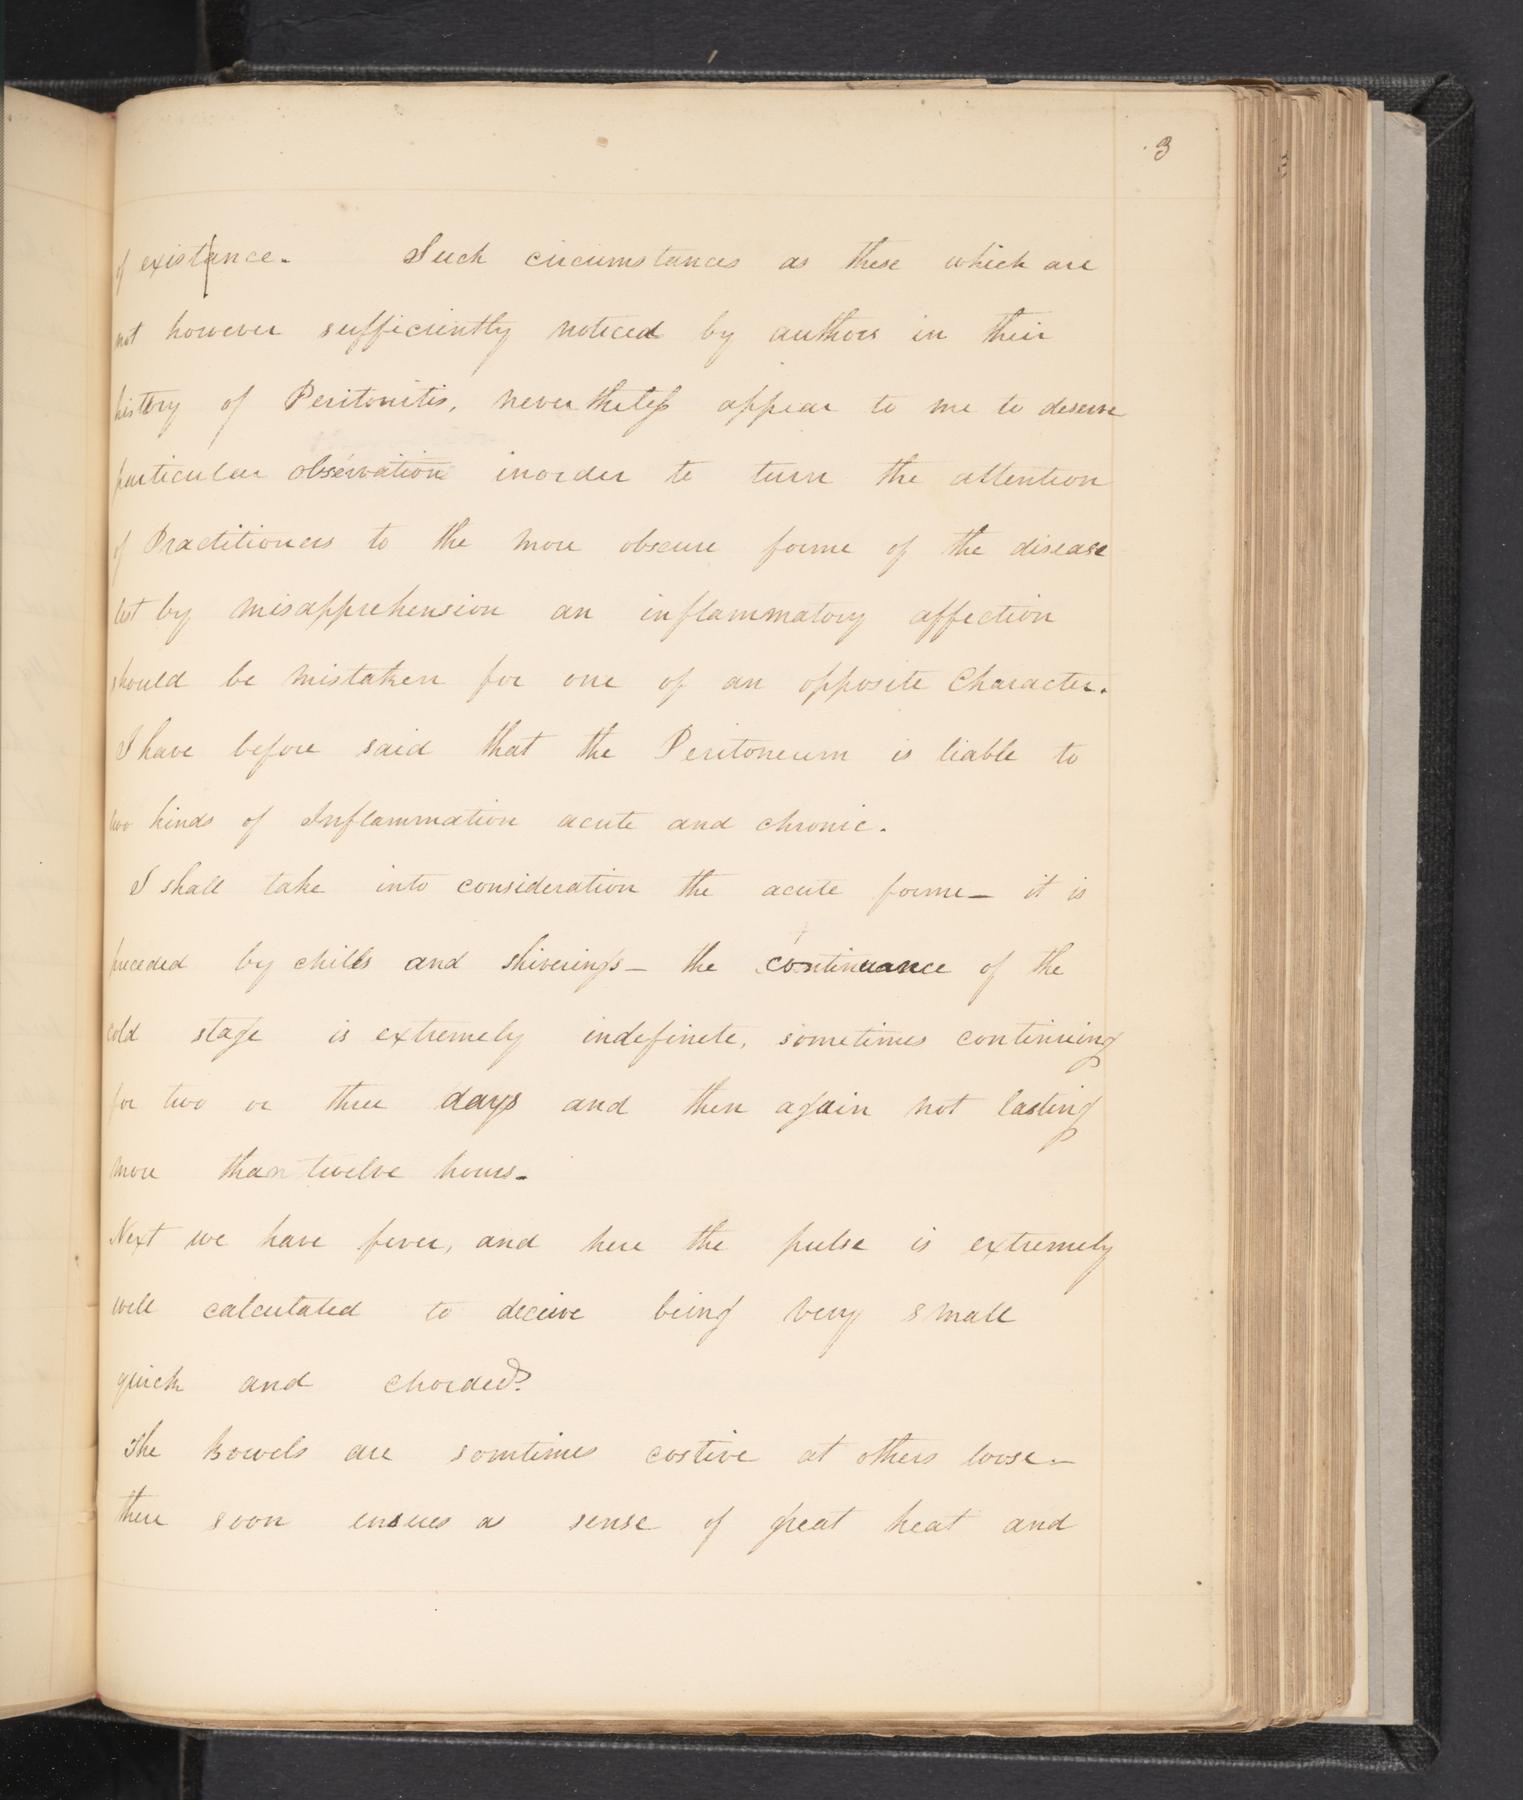 3
of existance. Such circumstances as these which are
not however sufficiently noticed by authors in their
history of Peritonitis, never theless appear to me to deserve
particular observation inorder to turn the attention
of Practitioners to the more obscure forme of the disease
lest by misapprehension an inflammatory affection
should be mistaken for one of an opposite Character.
I have before said that the Peritoneum is liable to
two kinds of Inflammation acute and chronic.
I shall take into consideration the acute forme_ it is
preceded by chills and shiverings_ the continuance of the
cold stage is extremely indefinete, sometimes continuing
for two or three days and then again not lasting
more than twelve hours_
Next we have fever, and here the pulse is extremely
well calculated to deceive being very small
quick and chorded.
The Bowels are somtimes costive at others loose_
there soon ensues a sense of great heat and